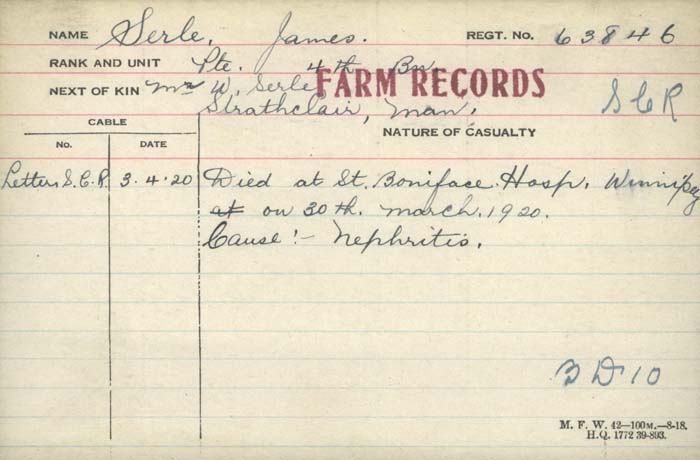 NAME Serle, James. REGT. No. 63846
RANK AND UNIT Pte. 4th Bn
NEXT OF KIN Mr W. Serle FARM RECORDS
Strathclair, Man. S C R
CABLE NATURE OF CASUALTY
No. DATE
Letters S.C.R. 3.4.20 Died at St. Boniface Hosp. Winnipeg
at on 30th. March. 1920.
Cause:- Nephritis.
B D 10
M. F. W. 42—100M.—8-18.
H.Q. 1772 39-893.